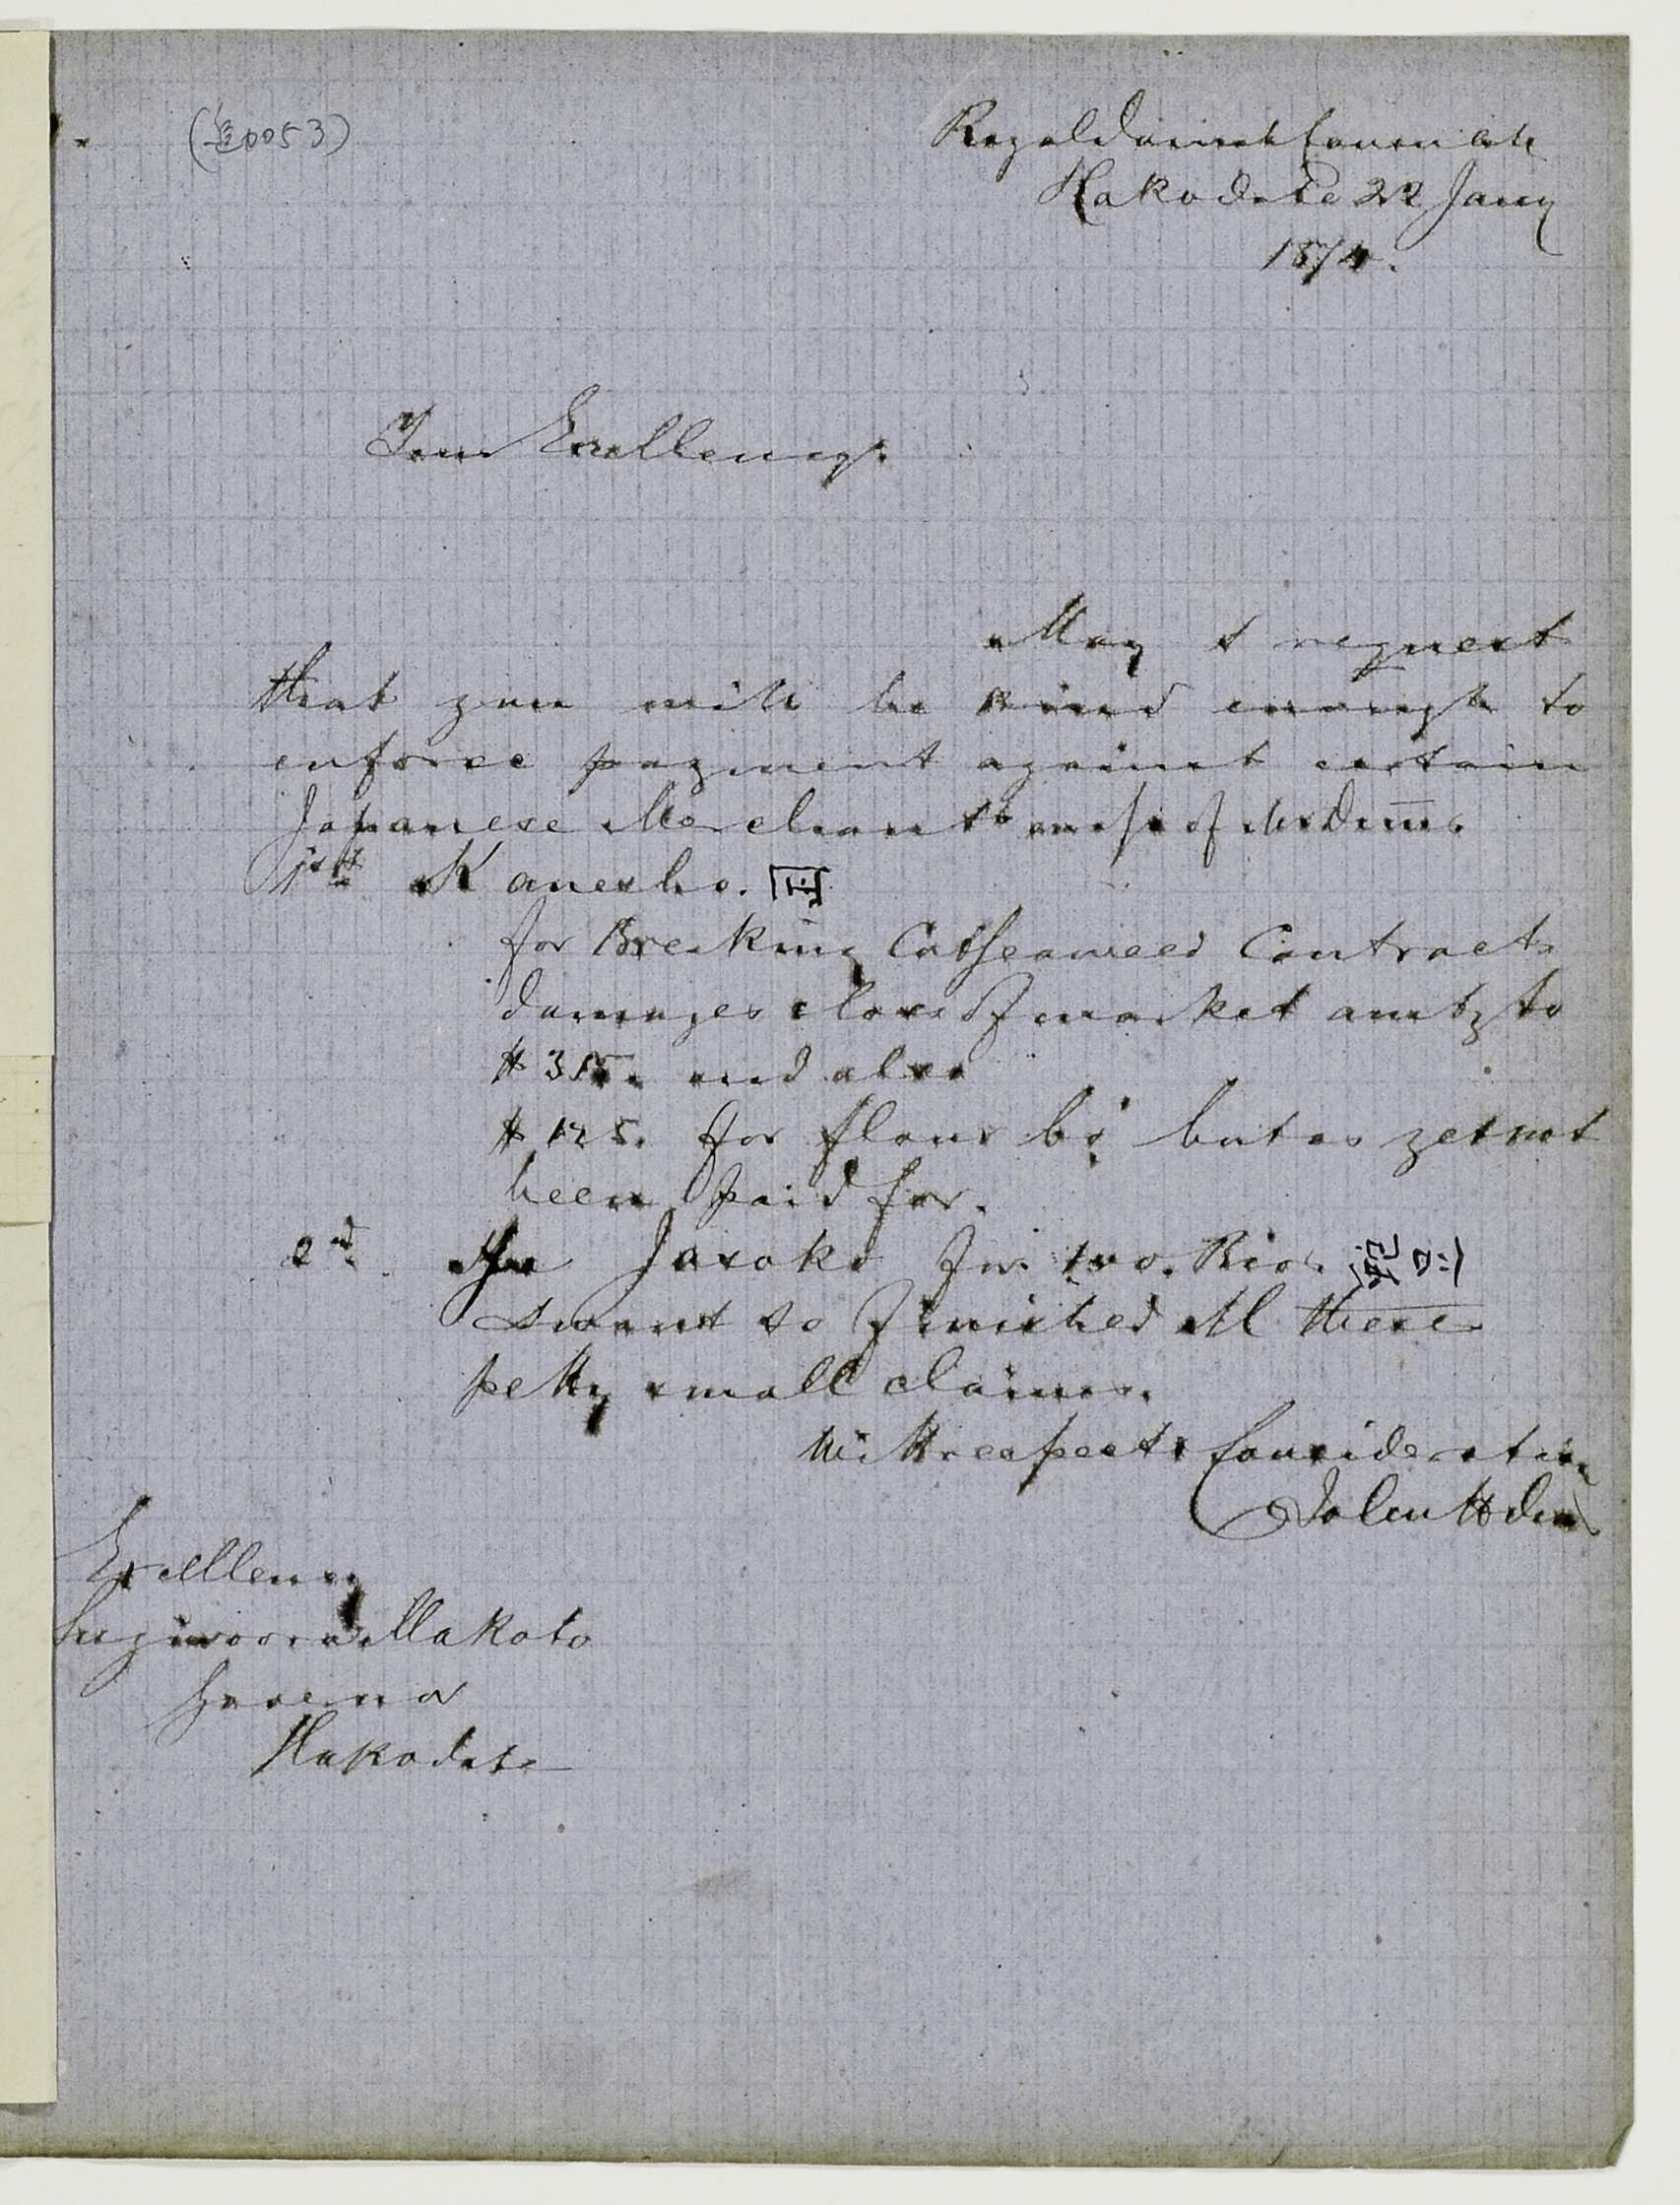 (0053)
Royal Danish Consulate
Hakodate 22 Jany
1874.
Your Excellency.
May I request
that you will be kind enough to
enforce payment against certain
Japanese Merchants of
1st Kanesho.
for Breaking Cutseaweed Contract
damages & loss of market amtg to
$ 315. and also
$ 125. for flour but as yet not
been paid for.
2nd
I want to finished all these
petty small claims.
With respects Consideration
John H Duus
Excellency
Sugiwoora Makoto
Governor
Hakodate